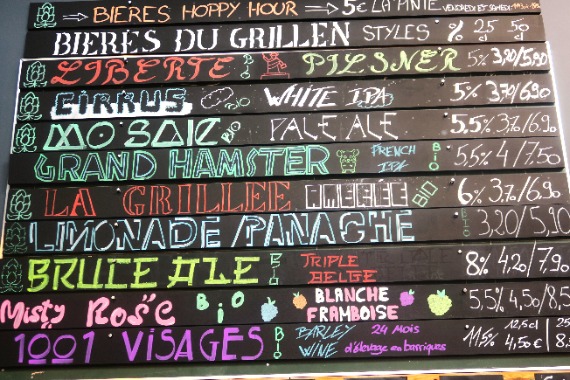 → BIÈRES HOPPY HOUR → 5€ LA PINTE VENDREDI ET SAMEDI
BIÈRES DU GRILLEN STYLES % 25 50
LIBERTÉ BIO PILSNER 5% 3,90/5,90
CIRRUS BIO WHITE IPA 5% 3,70/6,90
MOSAIC BIO PALE ALE 5,5% 3,70/6,90
GRAND HAMSTER FRENCH IPA BIO 5,5% 4/7,50
LA GRILLEE BIO 6% 3,70/6,90
LIMONADE/PANACHE BIO 3,20/5,90
BRUTE ALE BIO TRIPLE BELGE 8% 4,20/7,90
MISTY ROSE BIO BLANCHE FRAMBOISE 5,5% 4,50/8,5
1001 VISAGES BIO BARLEY WINE 24 MOIS d'élevage en barriques 11,5% 12,5cl 4,50€